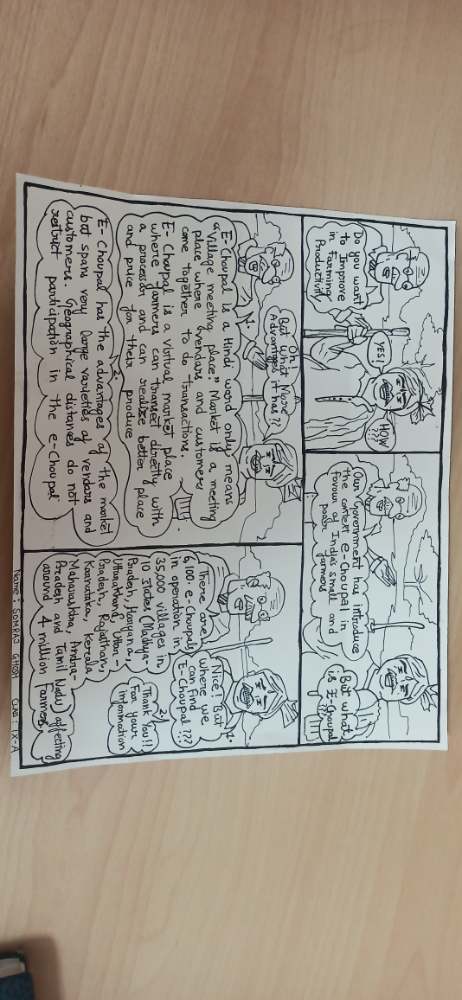 Do you want
to Improve
in Farming
Productivity
YES!
HOW
???
Our Government has introduce
the context e-Choupal in
favour of Indias small and
poor farmers
But what
is E-Choupal
???
Oh!
But What More
Advantages it has??
1.
E-Choupal is a Hindi word only means
"Village meeting place." Market is a meeting
place where vendors and customers
come together to do transactions.
E-Choupal is a virtual market place
where farmers can transect directly with
a processor and can realize better place
and price for their produce
2.
E-Choupal has the advantages of the market
but spans very large varieties of vendors and
customers. Geographical distances do not
restrict participation in the e-Choupal
1.
Nice! But
where we
can find
E-Choupal???
There are
6,100- e-Choupals
in operation in
35,000 villages in
10 States (Madhya-
Pradesh, Haryana,
Uttarakhand, Uttar-
Pradesh, Rajasthan,
Karnataka, Kerala,
Maharashtra, Andhra-
Pradesh and Tamil Nadu) affecting
around 4 million farmers
2.
Thank You!!
For your
information
Name: SOMRAJ GHOSH Class: IX-A